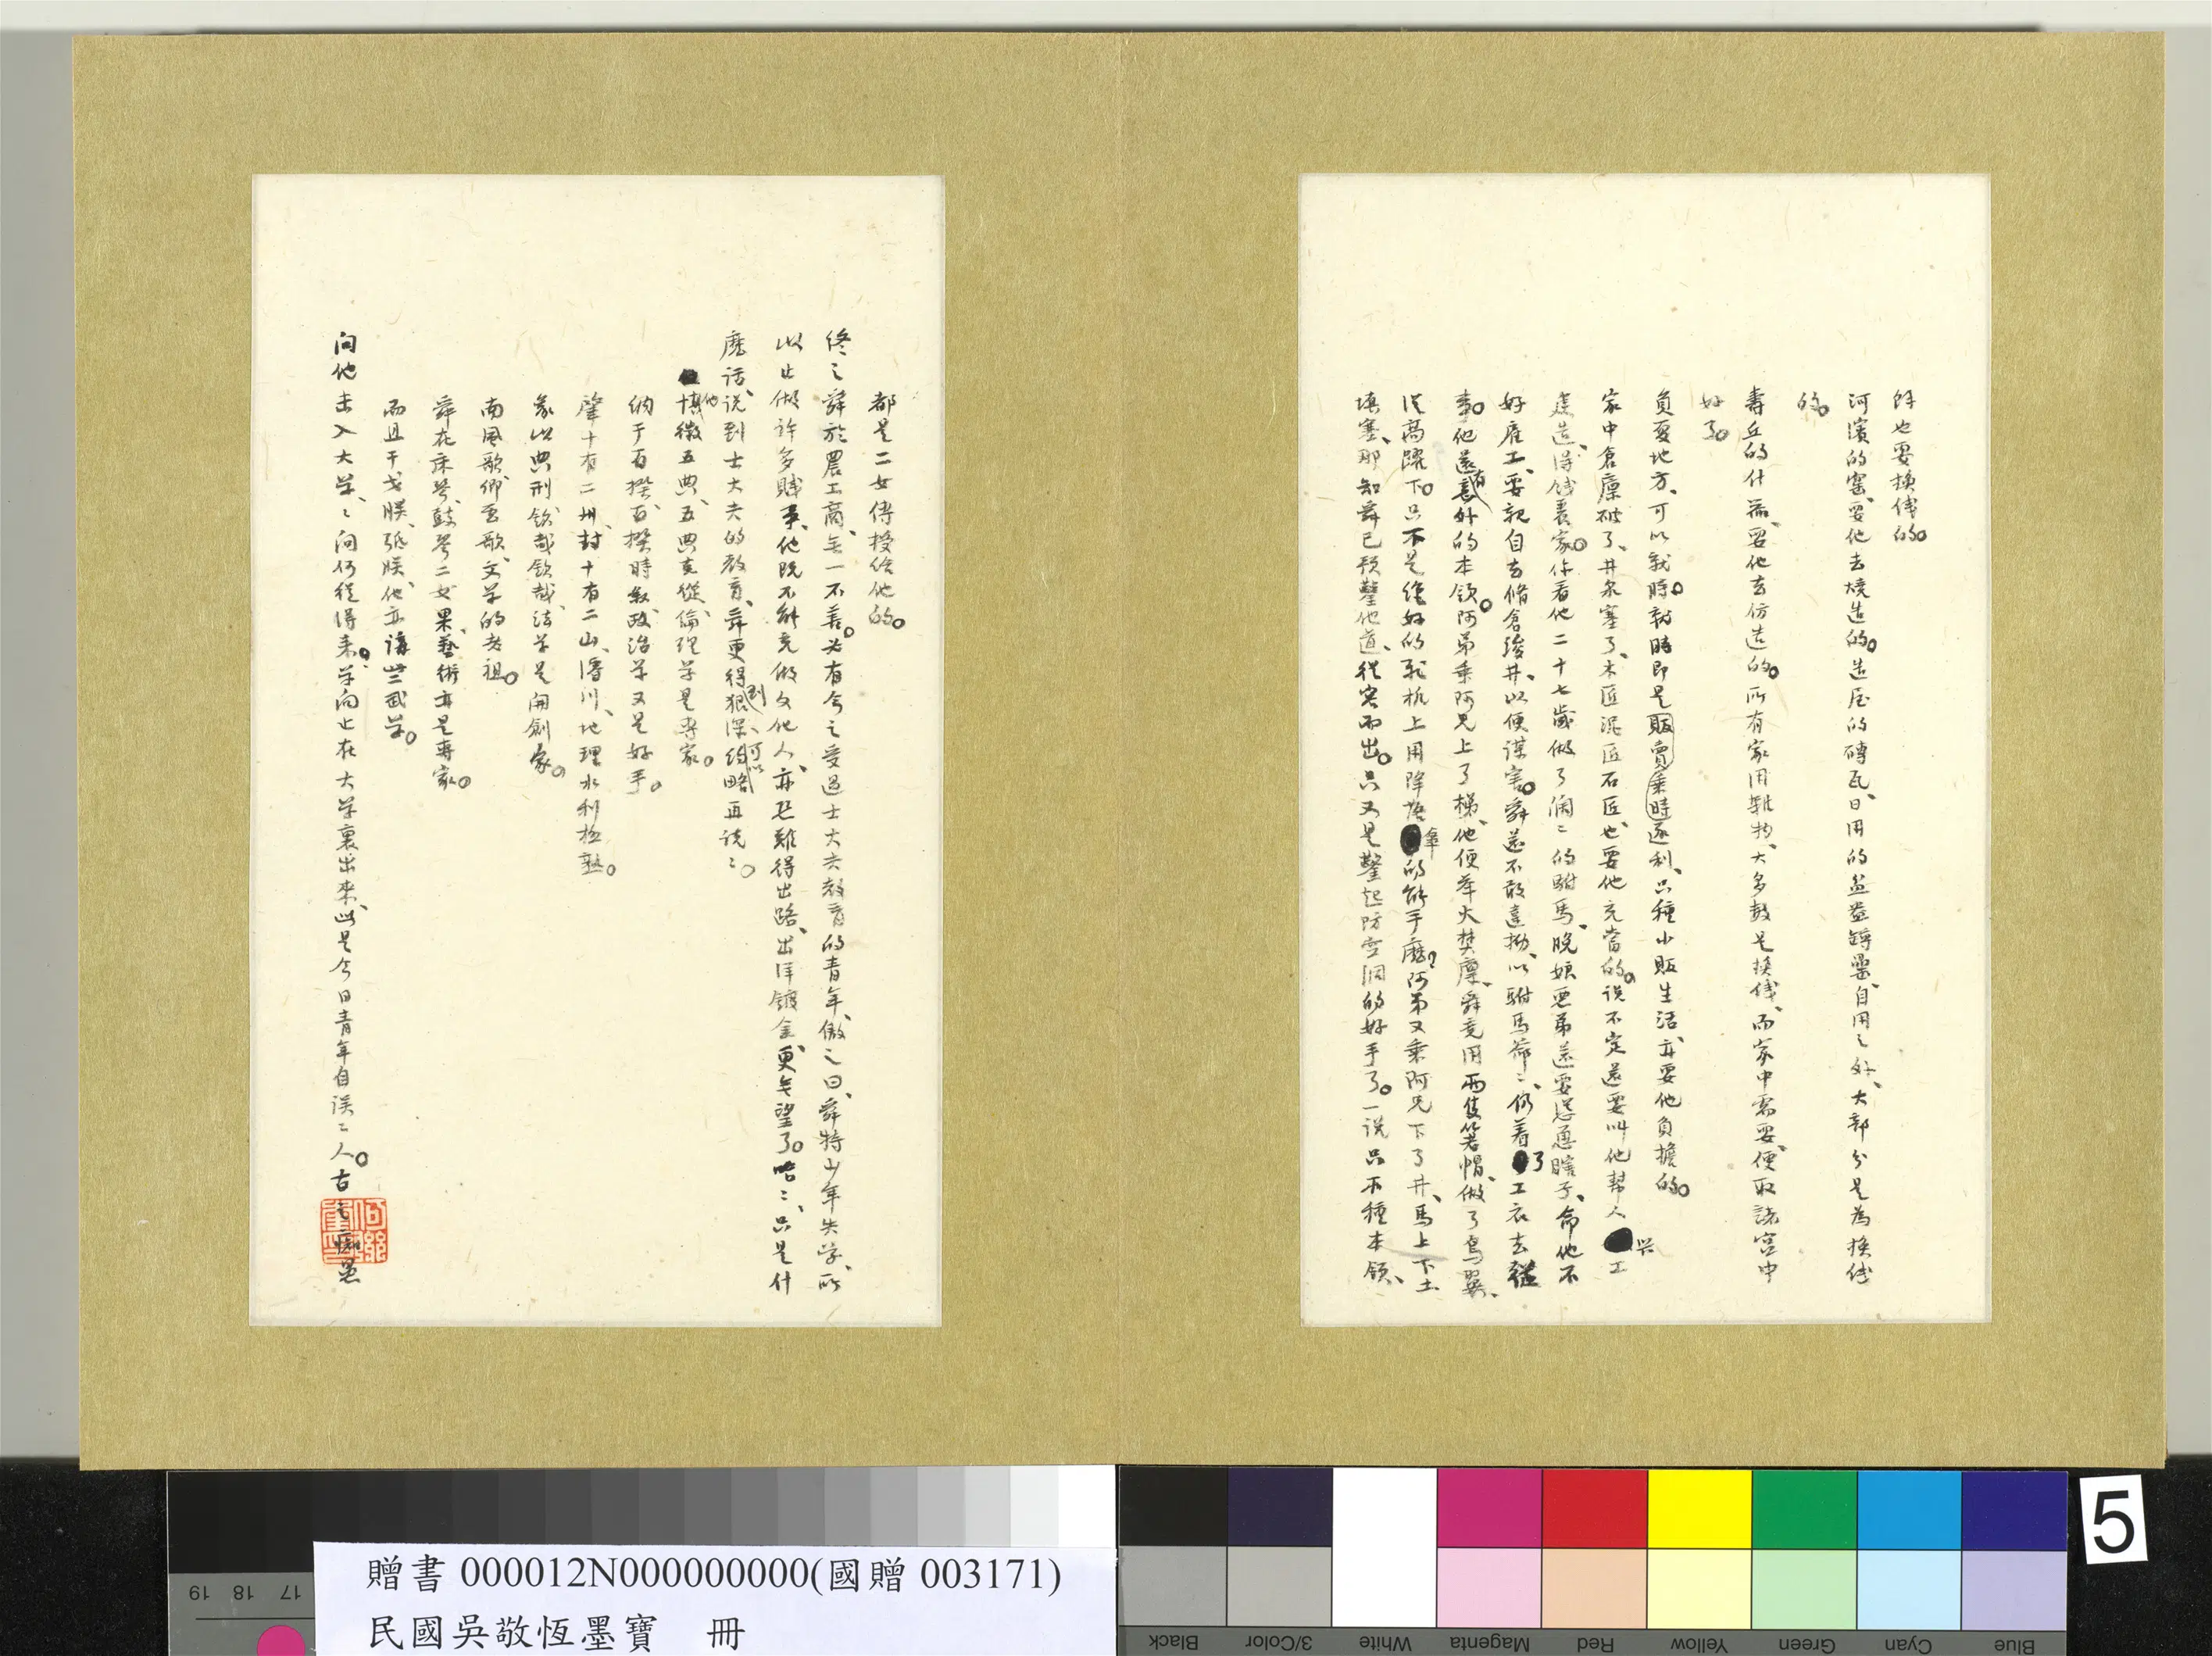 餘也要換錢的。
河濱的窰、要他去燒造的。造屋的磚瓦、日用的盆盎罇罍、自用之外、大部分是為換錢
的。
壽丘的什器、要他去仿造的。所有家用雜物、大多數是換錢、而家中需要、便取諸宮中
好了。
負夏地方、可以就時。就時即是販賣乘時逐利、只種小販生活、亦要他負擔的。
家中倉廩破了、井泉塞了、木匠泥匠石匠也要他充當的。說不定還要叫他幫人 興工
建造、得錢養家。你看他二十七歲做了闊二的駙馬、晚娘惡弟還要慫恿瞎子、命他不
好雇工、要親自去脩倉浚井、以便謀害。舜並不敢違拗、以駙馬爺二、仍着了工衣去
事。他還有意外的本領。阿弟乘阿兄上了梯、他便舉火焚廩、舜竟用兩隻箬帽、做了鳥翼、
從高躍下。只不是絕好的飛機上用降落傘的能手麼？阿弟又乘阿兄下了井、馬上下土
填塞、那知舜已預鑿他道、從容而出。只又是鑿起防空洞的好手了。一說只不種本領、
都是二女傳授給他的。
終之舜於農工商、無一不善。必有今之受過士大夫教育的青年、傲之曰、舜特少年失學、所
以止做許多賤事、他既不能克做文化人、亦已難得出路、出洋鍍金、更無望了。咍二、只是什
麼話、說到士大夫的教育、舜更得到狠深、可以約略再說二。
他慎徽五典、五典克從、倫理學是專家。
納于百揆、百揆時敘、政治學又是好手。
肇十有二州、封十有二山、濬川、地理水利極熟。
象以典刑、欽哉欽哉、法學是開創家。
南風歌、卿雲歌、文學的老祖。
舜在床琴、鼓琴二女果、藝術亦是專家。
而且干戈朕、弤朕、他亦講點武學。
問他未入大學、二問何從得來？學問止在大學裏出來、此是今日青年自誤二人。古之癡愚
贈書 000012N000000000(國贈 003171)
民國吳敬恆墨寶 冊
5
19 18 17
Black 3/Color White Magenta Red Yellow Green Cyan Blue